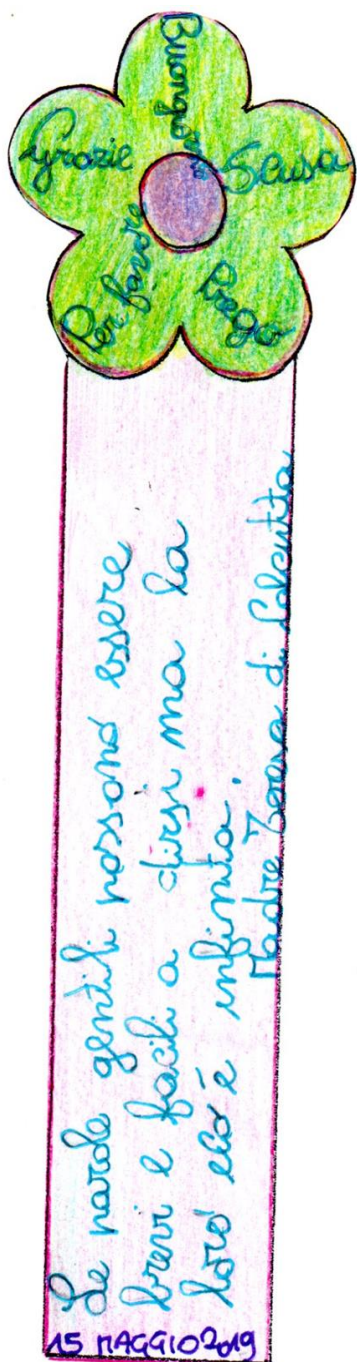 Buongiorno
Scusa
Prego
Per favore
Grazie
Le parole gentili possono essere
brevi e facili a dirsi ma la
loro eco è infinita.
Madre Teresa di Calcutta
15 MAGGIO 2019